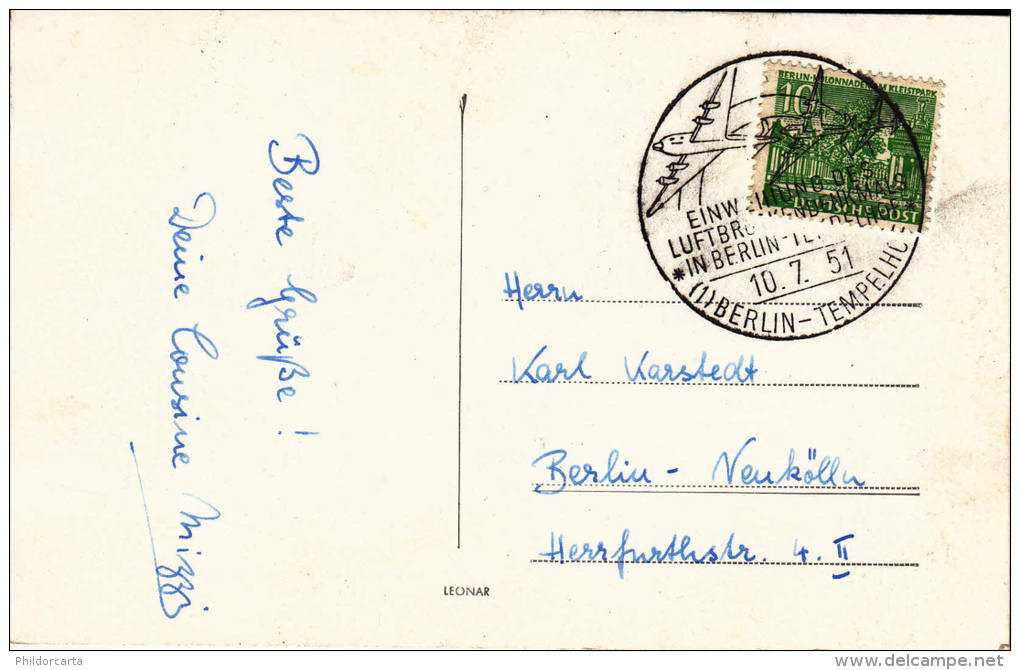 Beste Grüße!
Deine Cousine Mizzi
BERLIN-KOLONNADEN AM KLEISTPARK
10
DEUTSCHE POST
DES
LUFTBRÜ
IN BERLIN-TE
10.7.51
(1) BERLIN-TEMPELHO
Herrn
Karl Karstedt
Berlin- Neukölln
Herrfurthstr. 4. II
LEONAR
Phildorcarta
delcampe.net